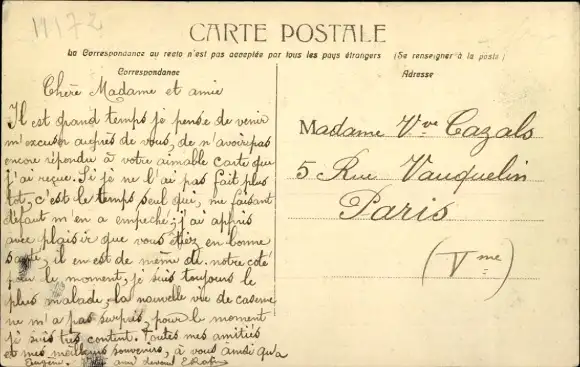 11172
CARTE POSTALE
La Correspondance au recto n'est pas acceptée par tous les pays étrangers (Se renseigner à la poste)
Correspondance
Adresse
Chère Madame et amie
Il est grand temps je pense de venir
m'excuser auprès de vous, de n'avoir pas
encore répondu à votre aimable carte que
j'ai reçue. Si je ne l'ai pas fait plus
tot, c'est le temps seul qui, me faisant
défaut m'en a empeché; j'ai appris
avec plaisir que vous étiez en bonne
santé, il en est de même de notre coté
pour le moment, je suis toujours le
plus malade. la nouvelle vie de caserne
ne m'a pas surpris, pour le moment
je suis très content. Toutes mes amitiés
et mes meilleurs souvenirs, à vous ainsi qu'a
Eugène.
Madame Vve Cazals
5 Rue Vauquelin
Paris
(Vme)